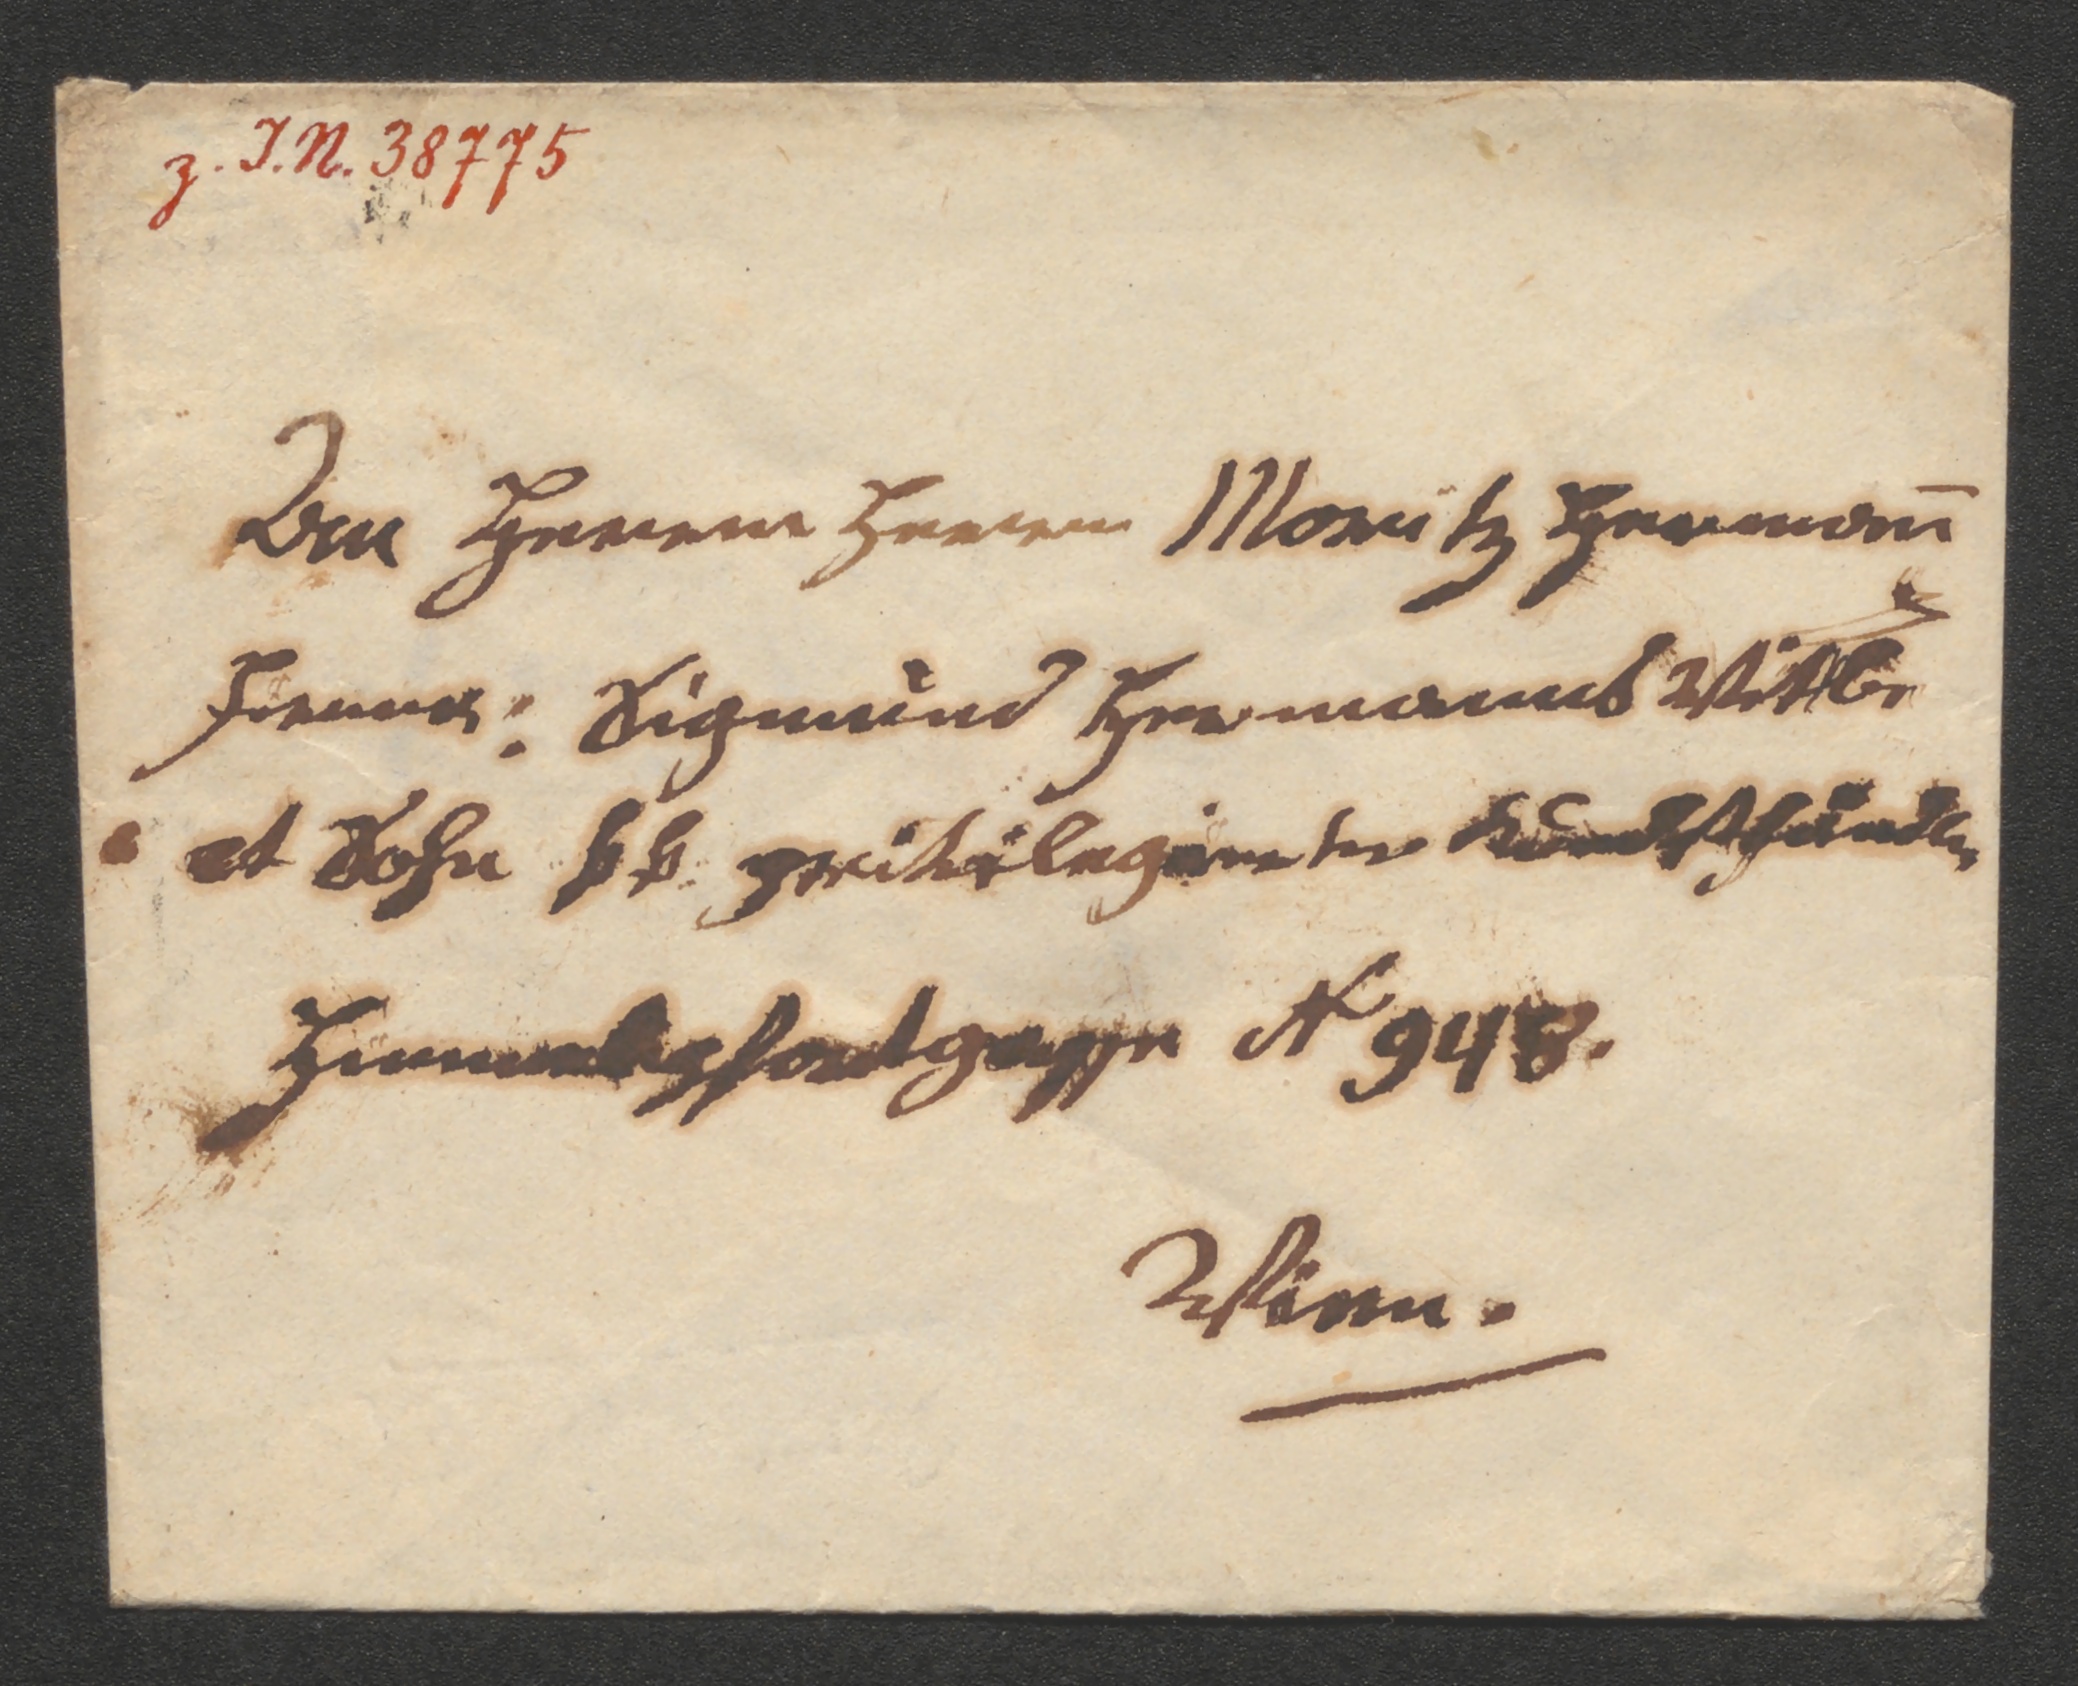 z. I.N. 38775
Den Herren Herren Moritz Herman̄
Firma: Sigmund Hermanns Witbe
et Sohn kk privilegirter Kunsthändler
Himmelpfortgasse N 948.
Wien.